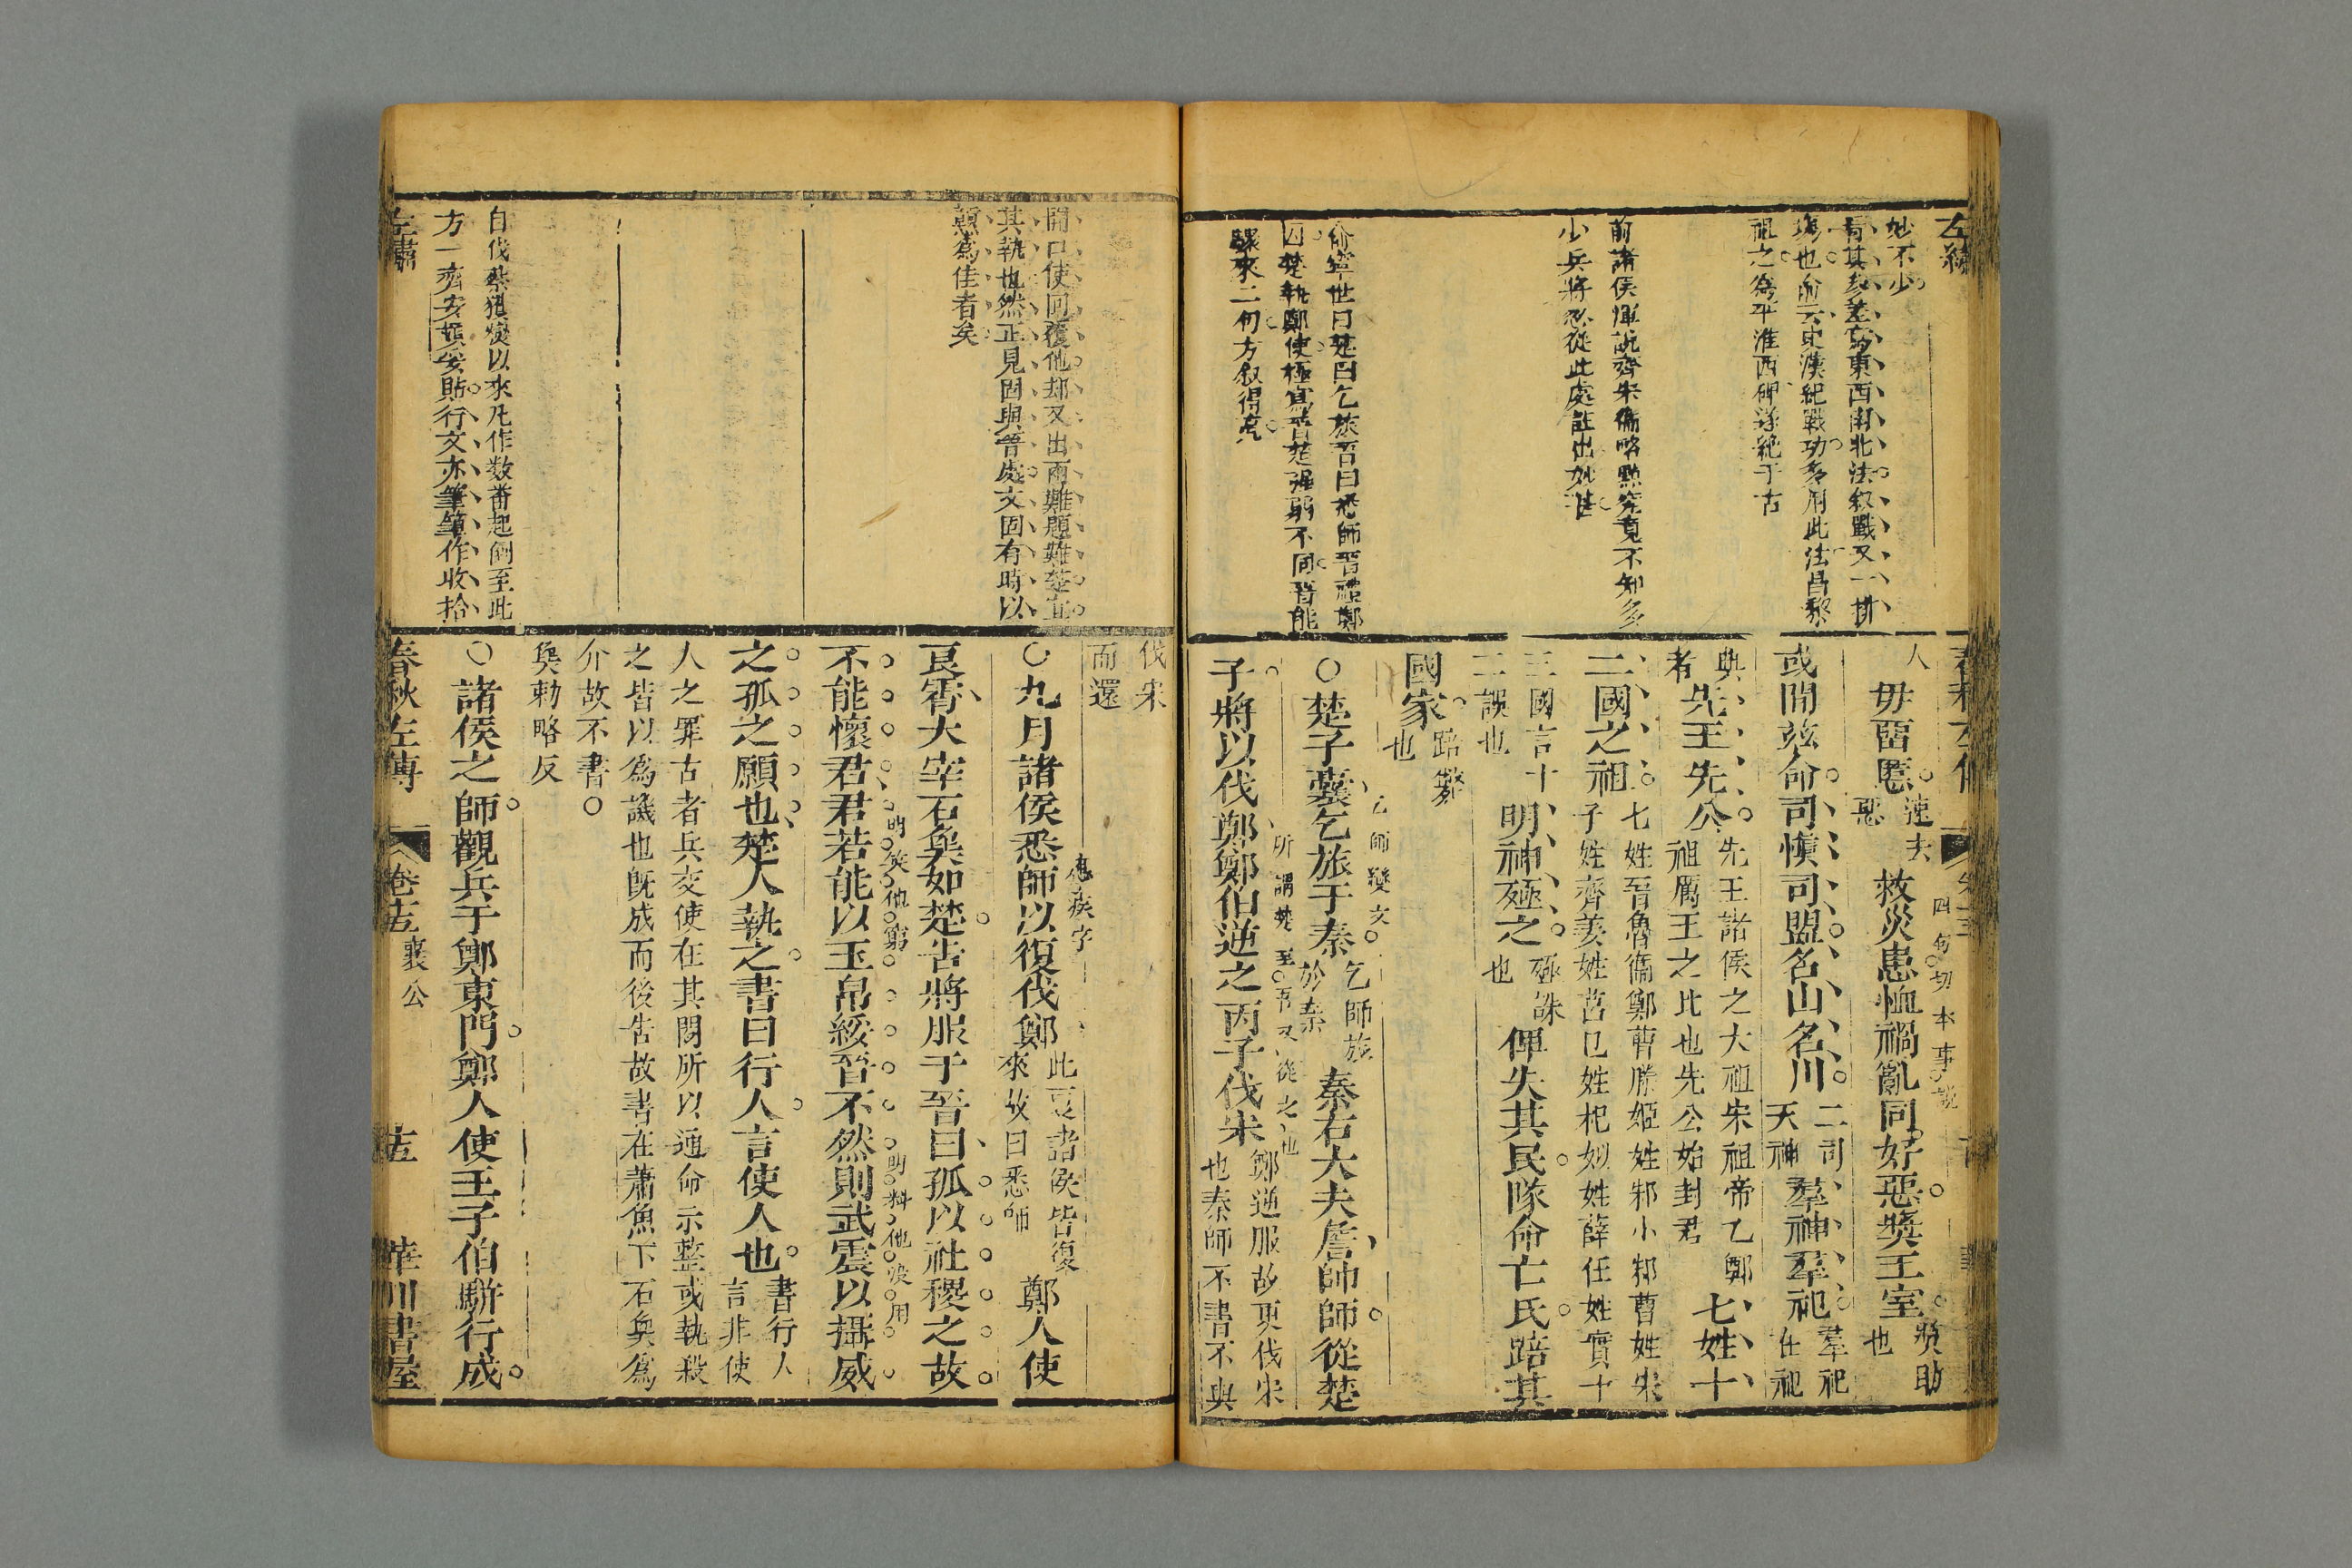 左繡
妙不少
看其參差寫東西南北法叙戰又一排
塲也前云史漢紀戰功多用此法昌黎
祖之為平淮西碑遂絶千古
前諸侯渾說齊宋衞略點究竟不知多
少兵將忽從此處註出妙法
俞寧世曰楚曰乞旅晉曰悉師晉禮鄭
囚楚執鄭使極寫晉楚强弱不同晉能
驟來二句方叙得亮
春秋左傳
人
毋畱慝速去惡救災患恤禍亂同好惡奬王室奬助也
四句切本事說
或間茲命司愼司盟名山名川二司天神羣神羣祀羣祀在祀
典者先王先公先王諸侯之大祖宋祖帝乙鄭祖厲王之比也先公始封君七姓十
二國之祖七姓晉魯衞鄭曹滕姬姓邾小邾曹姓宋子姓齊姜姓莒己姓杞姒姓薛任姓實十
三國言十二誤也明神殛之殛誅也俾失其民隊命亡氏踣其
國家踣斃也
○楚子囊乞旅于秦乞師旅於秦秦右大夫詹帥師從楚
乞師變文
子將以伐鄭鄭伯逆之丙子伐宋鄭逆服故更伐宋也秦師不書不與
所謂楚至吾又從之也
伐宋而還
○九月諸侯悉師以復伐鄭此夏諸侯皆復來故曰悉師鄭人使
良霄大宰石㚟如楚告將服于晉曰孤以社稷之故
不能懷君君若能以玉帛綏晉不然則武震以攝威
明笑他窮
明料他沒用
之孤之願也楚人執之書曰行人言使人也書行人言非使
人之罪古者兵交使在其間所以通命示整或執殺
之皆以為譏也旣成而後告故書在蕭魚下石㚟為
介故不書○
㚟勅略反
○諸侯之師觀兵于鄭東門鄭人使王子伯駢行成
開口使回覆他却又出兩難題難楚宜
其執也然正見固與晉處文固有時以
顛為佳者矣
自伐蔡獲燮以來凡作数番起倒至此
方一齊安頓妥貼行文亦筆筆作收拾
左繡
春秋左傳
卷十五
襄公
十五
華川書屋